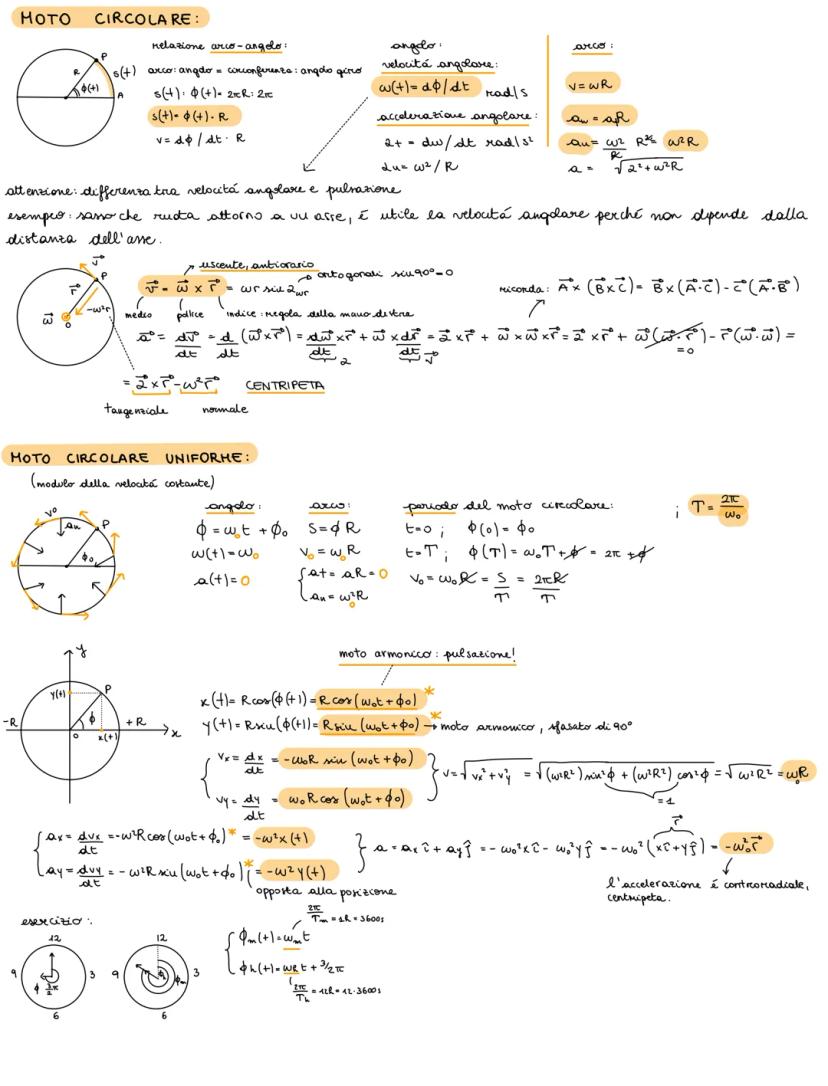 MOTO CIRCOLARE:
relazione arco-angolo:
arco: angolo = circonferenza: angolo giro
s(t): ϕ(t) = 2πR: 2π
s(t) = ϕ(t) · R
v = dϕ/dt · R
P
R
s(t)
ϕ(t)
A
angolo:
velocitá angolare:
ω(t) = dϕ/dt rad/s
accelerazione angolare:
αt = dω/dt rad/s²
αn = ω²/R
arco:
v = ωR
a = √α² + ω²R
attenzione: differenza tra velocitá angolare e pulsazione
esempio: sasso che ruota attorno a un asse, é utile la velocitá angolare perché non dipende dalla
distanza dell'asse.
v⃗
P
r⃗
-ω²r
ω⃗
O
uscente, antiorario
v⃗ = ω⃗ × r⃗ = ωr sin αωr
ortogonali sin90°=0
medio pollice indice: regola della mano destra
ricorda: A⃗ × (B⃗×C⃗) = B⃗ × (A⃗·C⃗) - C⃗ (A⃗·B⃗)
a⃗ = dv⃗/dt = d/dt (ω⃗×r⃗) = dω⃗/dt ×r⃗ + ω⃗ × dr⃗/dt = α⃗ ×r⃗ + ω⃗ × ω⃗ × r⃗ = α⃗ × r⃗ + ω⃗(ω⃗·r⃗) - r⃗(ω⃗·ω⃗) =
α
v⃗
=0
= α⃗ × r⃗ - ω²r⃗ CENTRIPETA
tangenziale normale
MOTO CIRCOLARE UNIFORME:
(modulo della velocitá costante)
v0
an
P
ϕ0
angolo:
ϕ = ω0t + ϕ0
ω(t) = ω0
a(t) = 0
arco:
S = ϕR
v0 = ω0R
at = aR = 0
an = ω0²R
periodo del moto circolare:
t=0 ; ϕ(0) = ϕ0
t=T ; ϕ(T) = ω0T + ϕ = 2π + ϕ
v0 = ω0R = S/T = 2πR/T
; T = 2π/ω0
moto armonico: pulsazione!
y
y(t)
P
-R
ϕ
+R
O
x(t)
x
x(t) = Rcos(ϕ(t)) = R cos(ω0t + ϕ0)*
y(t) = Rsin(ϕ(t)) = R sin(ω0t + ϕ0)* → moto armonico, sfasato di 90°
vx = dx/dt = -ω0R sin (ω0t + ϕ0)
vy = dy/dt = ω0R cos (ω0t + ϕ0)
v = √vx² + vy² = √(ω²R²) sin²ϕ + (ω²R²) cos²ϕ = √ω²R² = ω0R
=1
ax = dvx/dt = -ω²R cos(ω0t + ϕ0)* = -ω²x(t)
ay = dvy/dt = -ω²R sin(ω0t + ϕ0)* = -ω²y(t)
a = ax î + ay ĵ = -ω0²xî - ω0²yĵ = -ω0²(xî + yĵ) = -ω0²r⃗
r⃗
opposta alla posizione
l'accelerazione é controradiale,
centripeta.
esercizio:
12
9
3
6
ϕ 3π/2
12
9
3
6
ϕh
ϕm
2π/Tm = 1h = 3600s
ϕm(t) = ωmt
ϕh(t) = ωht + 3/2π
2π/Th = 12h = 12·3600s